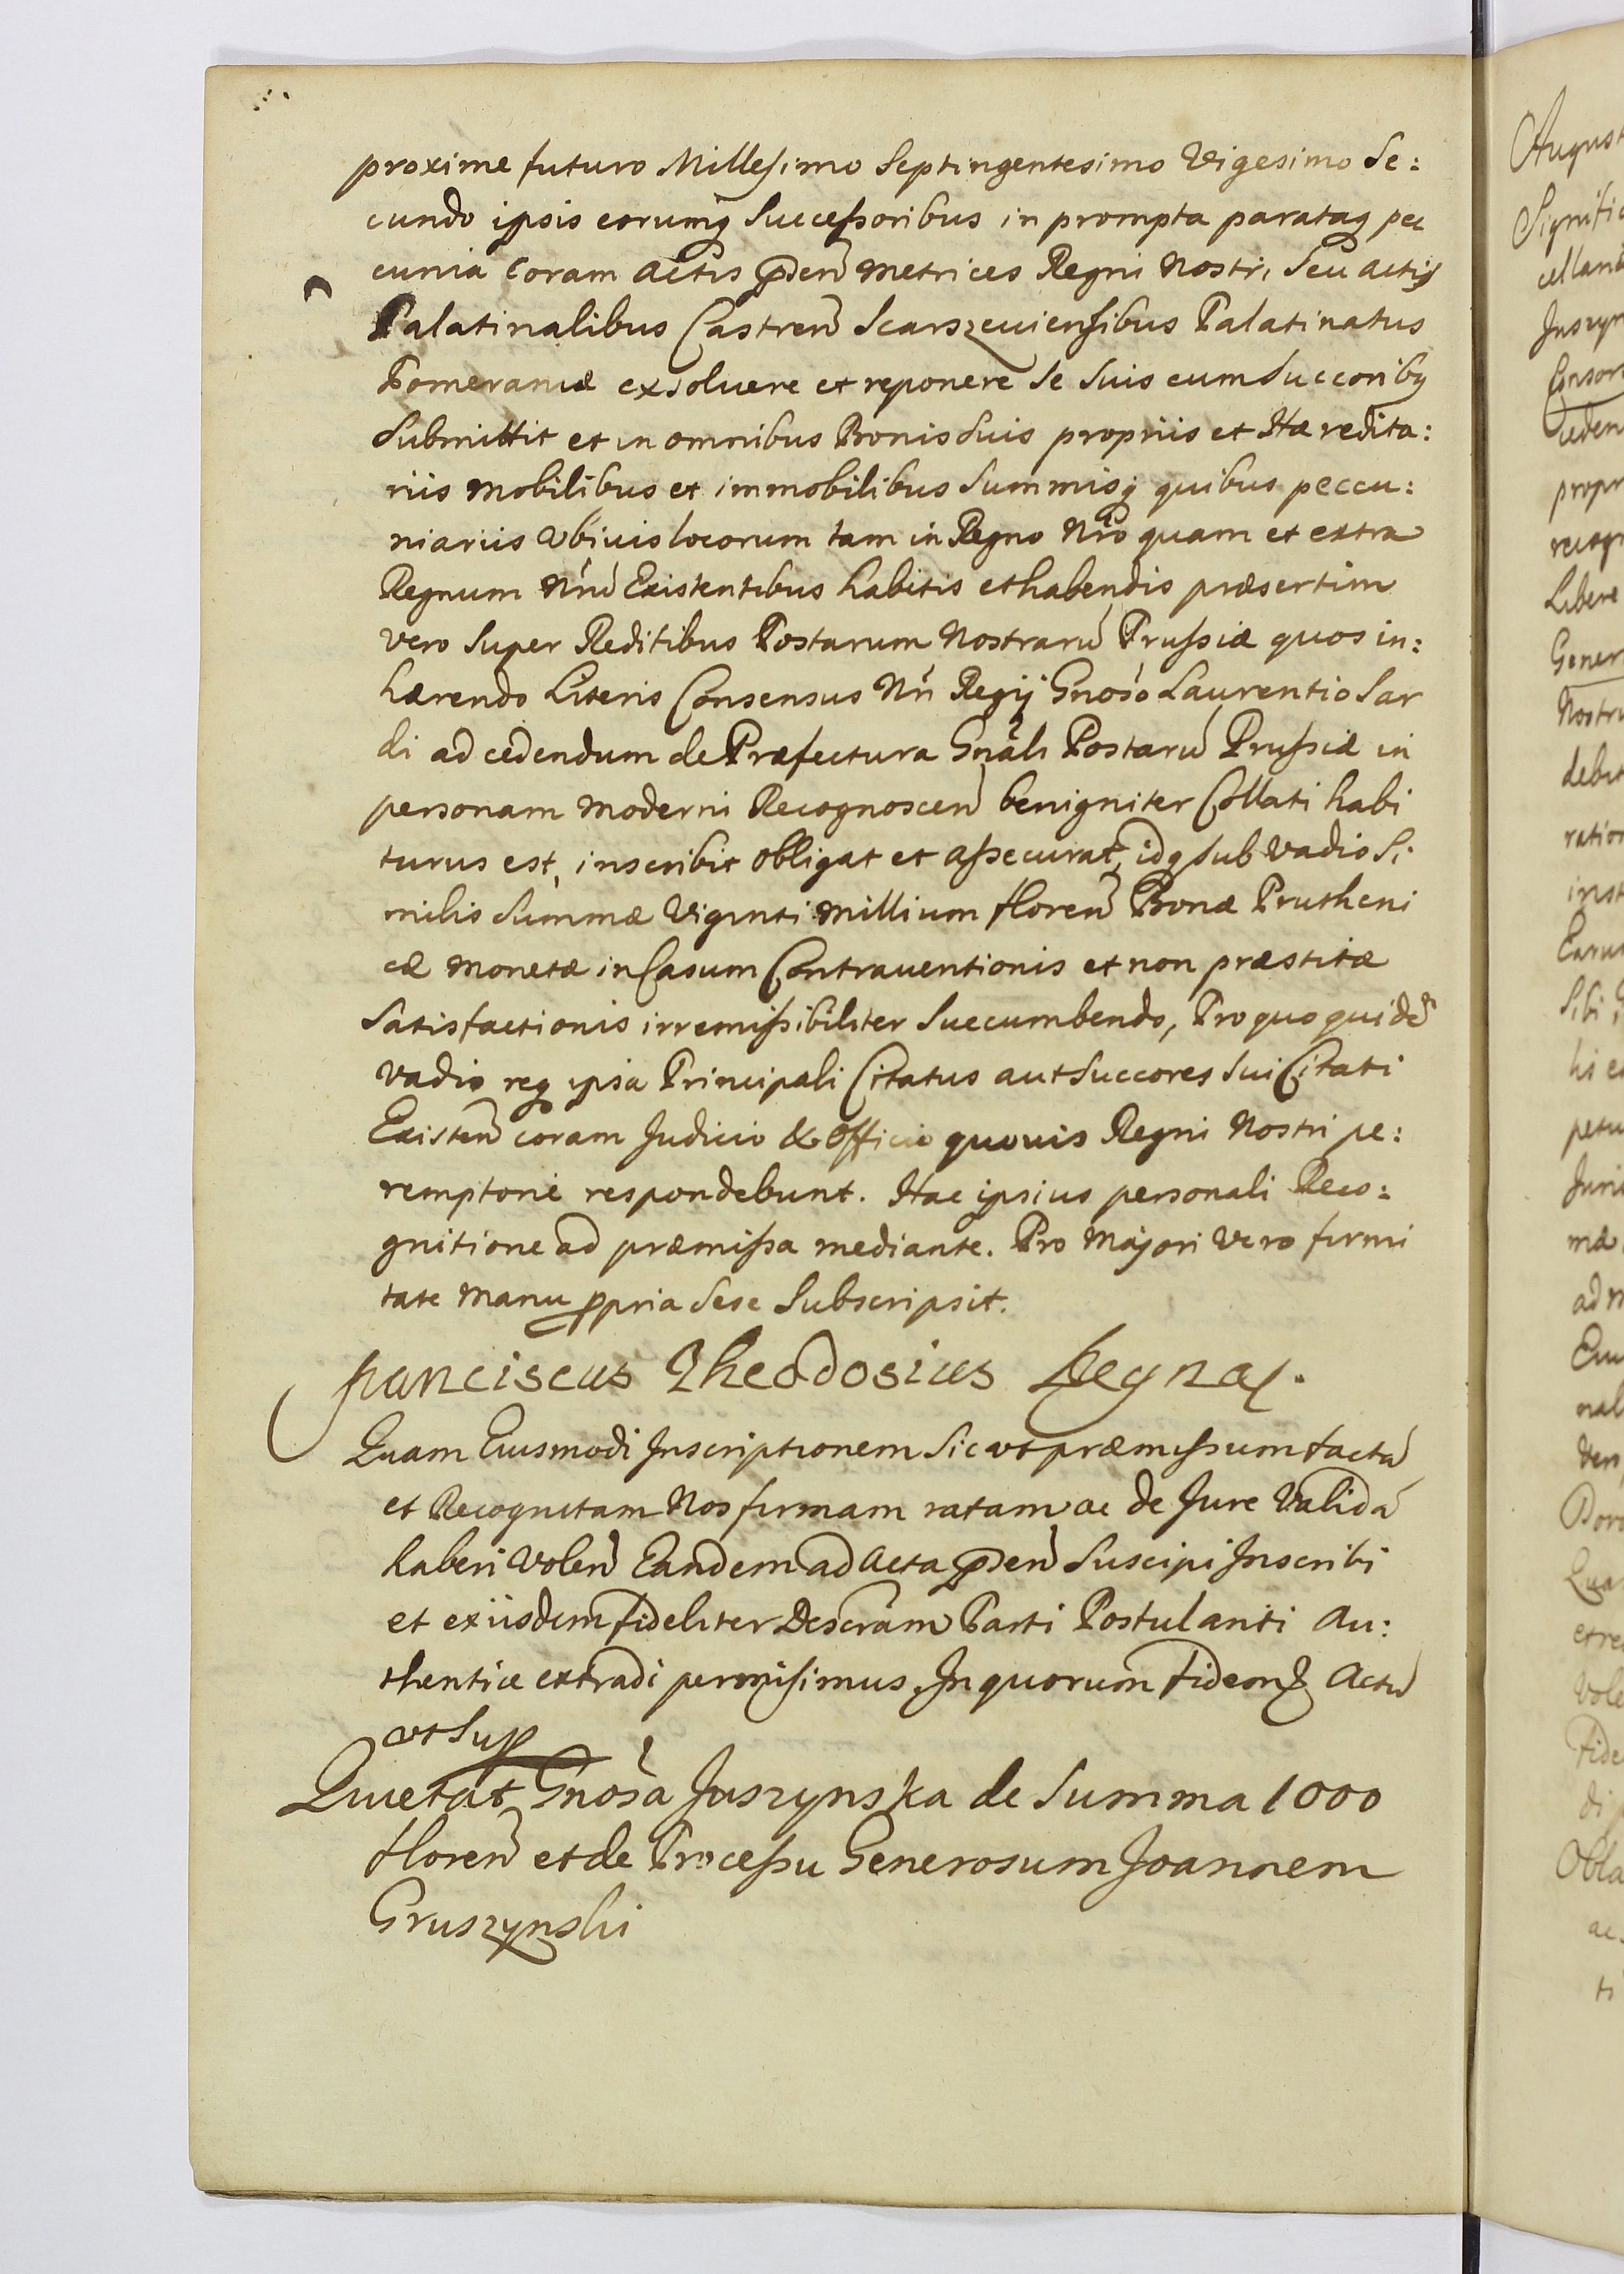 proxime futuro Millesimo Septingentesimo Vigesimo Se:
cundo ipsis eorumq Successoribus in prompta parataq pec
cunia Coram Actis pden Metrices Regni Nostri, Seu actis
Palatinalibus Castren Scarszeviensibus Palatinatus
Pomeraniæ exsoluere et reponere Se Suis cum Succoribq
Submittit et in omnibus Bonis Suis propriis et Hæredita:
riis Mobilibus et immobilibus Summisq quibus peccu:
niariis Vbiuis locorum tam in Regno Nro quam et extra
Regnum Nrũ Existentibus habitis et habendis præsertim
vero Super Reditibus Postarum Nostrarũ Prussiæ quos in:
hærendo Literis Consensus Nri Regij Gnoso Laurentio Sar
di ad cedendum de Præfectura Gnali Postarũ Prussiæ in
personam Moderni Recognoscen benigniter Collati habi
turus est, inscribit obligat et assecurat, idq Sub Vadio Si
milis Summæ Viginti Millium floren Bonæ Prutheni
cæ Monetæ in Casum Contrauentionis et non præstitæ
Satisfactionis irremissibiliter Succumbendo, Pro quo quidẽ
vadio req ipsa Principali Citatus aut Succores Sui Citati
Existen coram Judicio & Officio quouis Regni Nostri pe:
remptorie respondebunt. Hac ipsius personali Reco:
gnitione ad præmissa mediante. Pro Majori Vero firmi
tate Manu ppria Sese Subscripsit.
Franciscus Theodosius
Quam Eiusmodi Inscriptionem Sic vt præmissum factã
et Recognitam Nos firmam ratam ac de Jure Validã
haberi Volen Eandem ad Acta pden Suscipi Inscribi
et ex iisdem fideliter Descram Parti Postulanti Au:
thentice extradi permisimus. In quorum Fidem& Actũ
vt Sup
Quietat Gnosa Juszynska de Summa 1000
floren et de Processu Generosum Joannem
Gruszynski